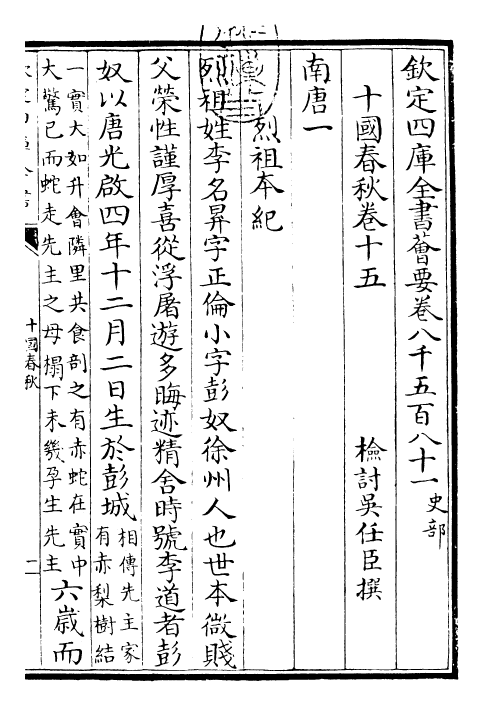 欽定四庫全書薈要卷八千五百八十一史部
十國春秋卷十五
檢討吳任臣撰
南唐一
烈祖本紀
烈祖姓李名昪字正倫小字彭奴徐州人也世本微賤
父榮性謹厚喜從浮屠遊多晦迹精舍時號李道者彭
奴以唐光啟四年十二月二日生於彭城相傳先主家
有赤梨樹結
一實大如升會隣里共食剖之有赤蛇在實中
大驚已而蛇走先主之母榻下未幾孕生先主六歳而
十國春秋
二